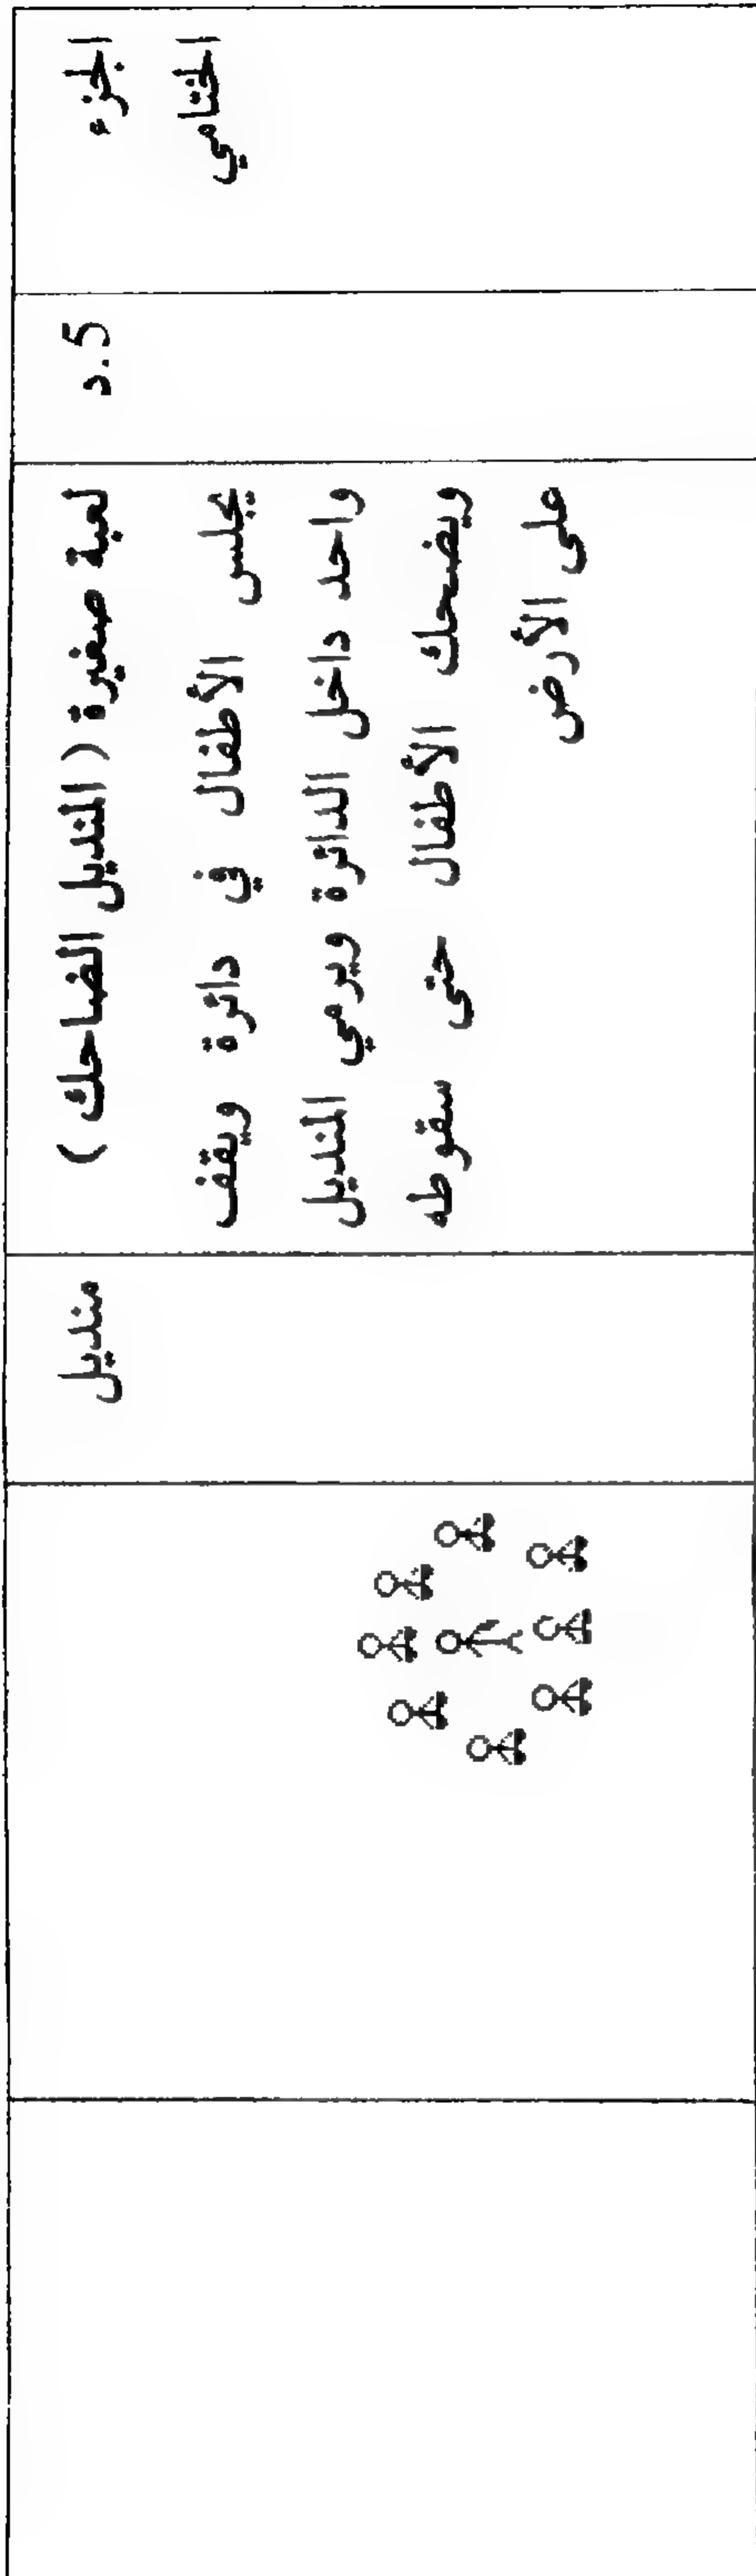 الجزء
الختامي
5.د
لعبة صغيرة ( المنديل الضاحك )
يجلس الأطفال في دائرة ويقف
واحد داخل الدائرة ويرمي المنديل
ويضحك الأطفال حتى سقوطه
على الأرض
منديل